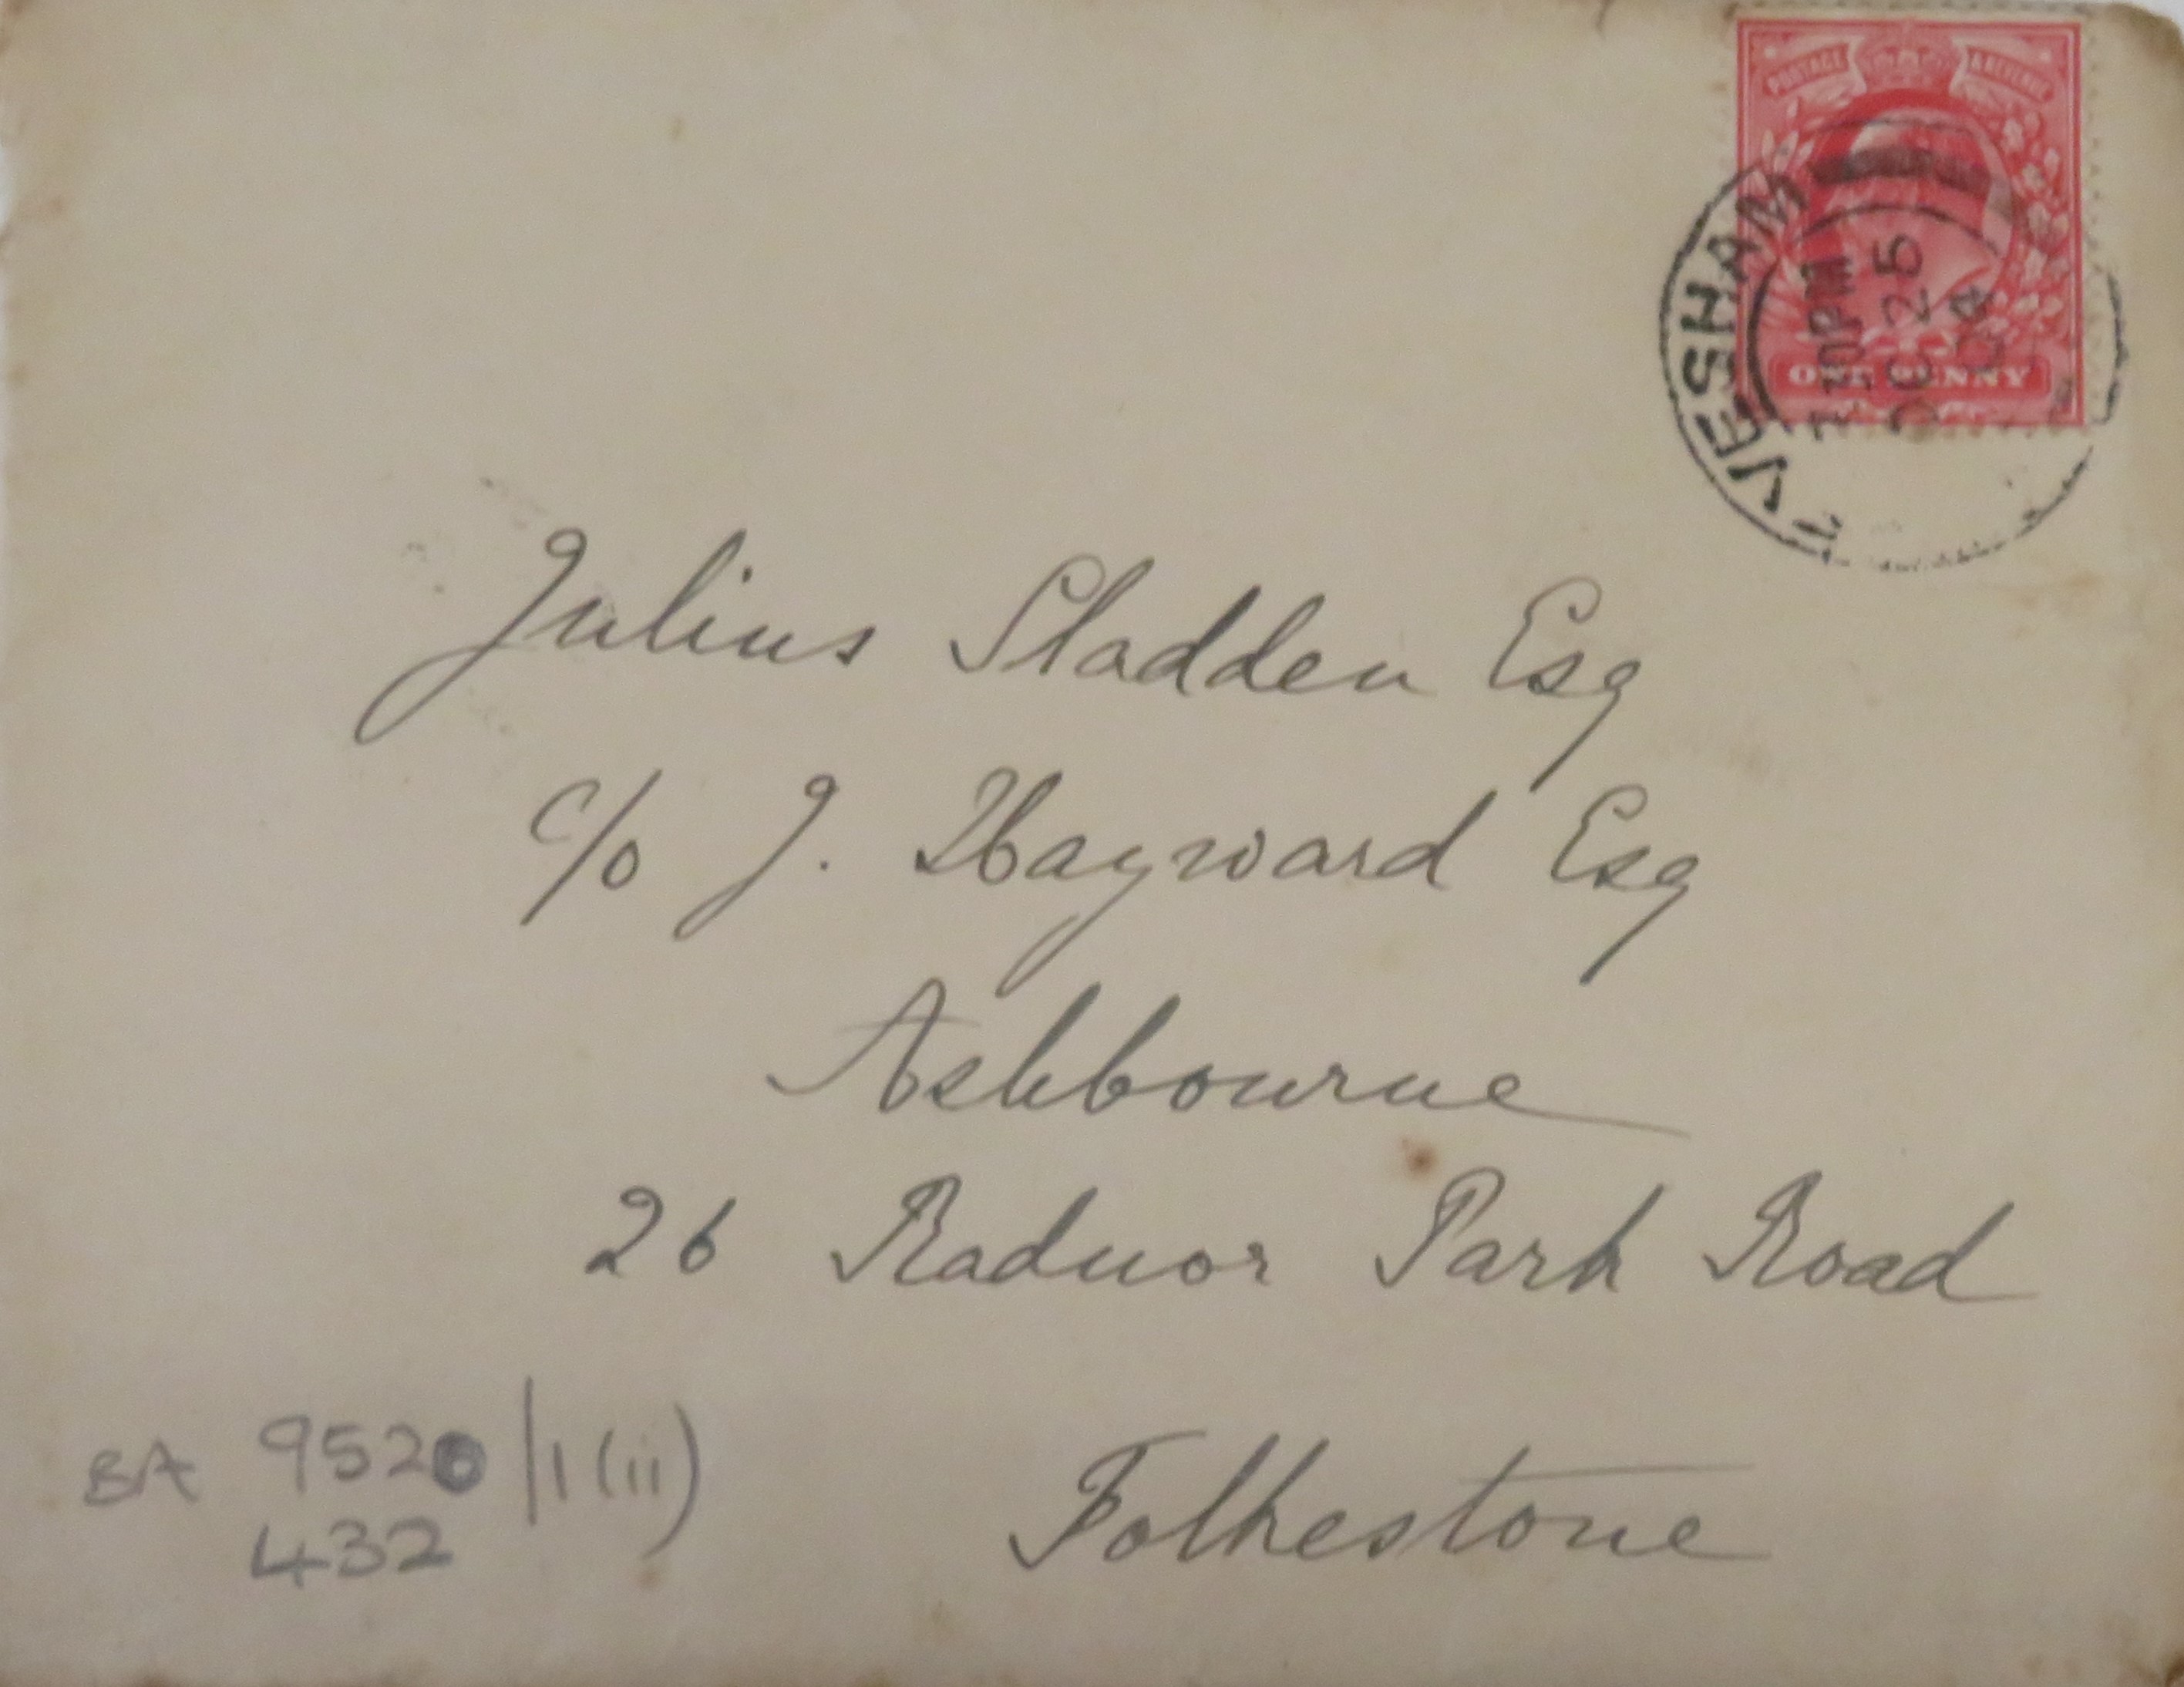 POSTAGE & REVENUE
ONE PENNY
EVESHAM
OC 25
04
Julius Sladden Esq
c/o J. Hayward Esq
Ashbourne
26 Radnor Park Road
Folkestone
BA 9520/1(ii)
432